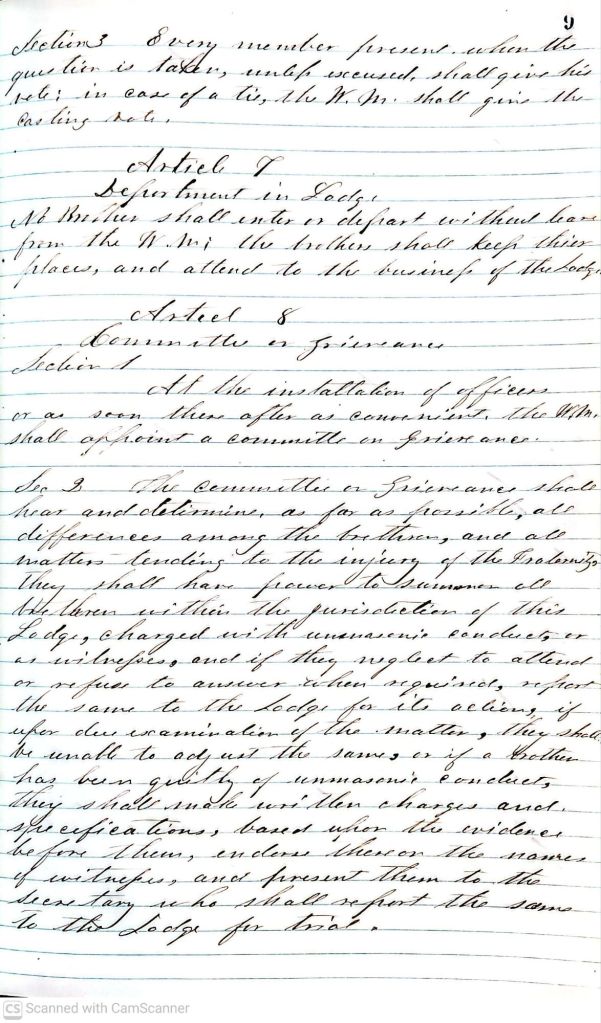 9
Section 3 Every member present when the
question is taken, unless excused, shall give his
vote; in case of a tie, the W. M. shall give the
casting vote.
Article 7
Deportment in Lodge
No Brother shall enter or depart without leave
from the W. M; the brothers shall keep thier
places, and attend to the business of the Lodge.
Articel 8
Committe on Grievance
Section 1
At the installation of officers
or as soon there after as convenient, the W.M.
shall appoint a committe on Grievance.
Sec 2 The committee on Grievance shall
hear and determine, as far as possible, all
differences among the brethren, and all
matters tending to the injury of the Fraternity
they shall have power to summon all
bretheren within the jurisdiction of this
Lodge, charged with unmasonic conduct, or
as witnesses, and if they neglect to attend
or refuse to answer when required, report
the same to the Lodge for its action, if
upon due examination of the matter, they shall
be unable to adjust the same, or if a brother
has been guilty of unmasonic conduct,
they shall make written charges and
specifications, based upon the evidence
before them, endorse thereon the names
of witnesses, and present them to the
Secretary who shall report the same
to the Lodge for trial.
CS Scanned with CamScanner